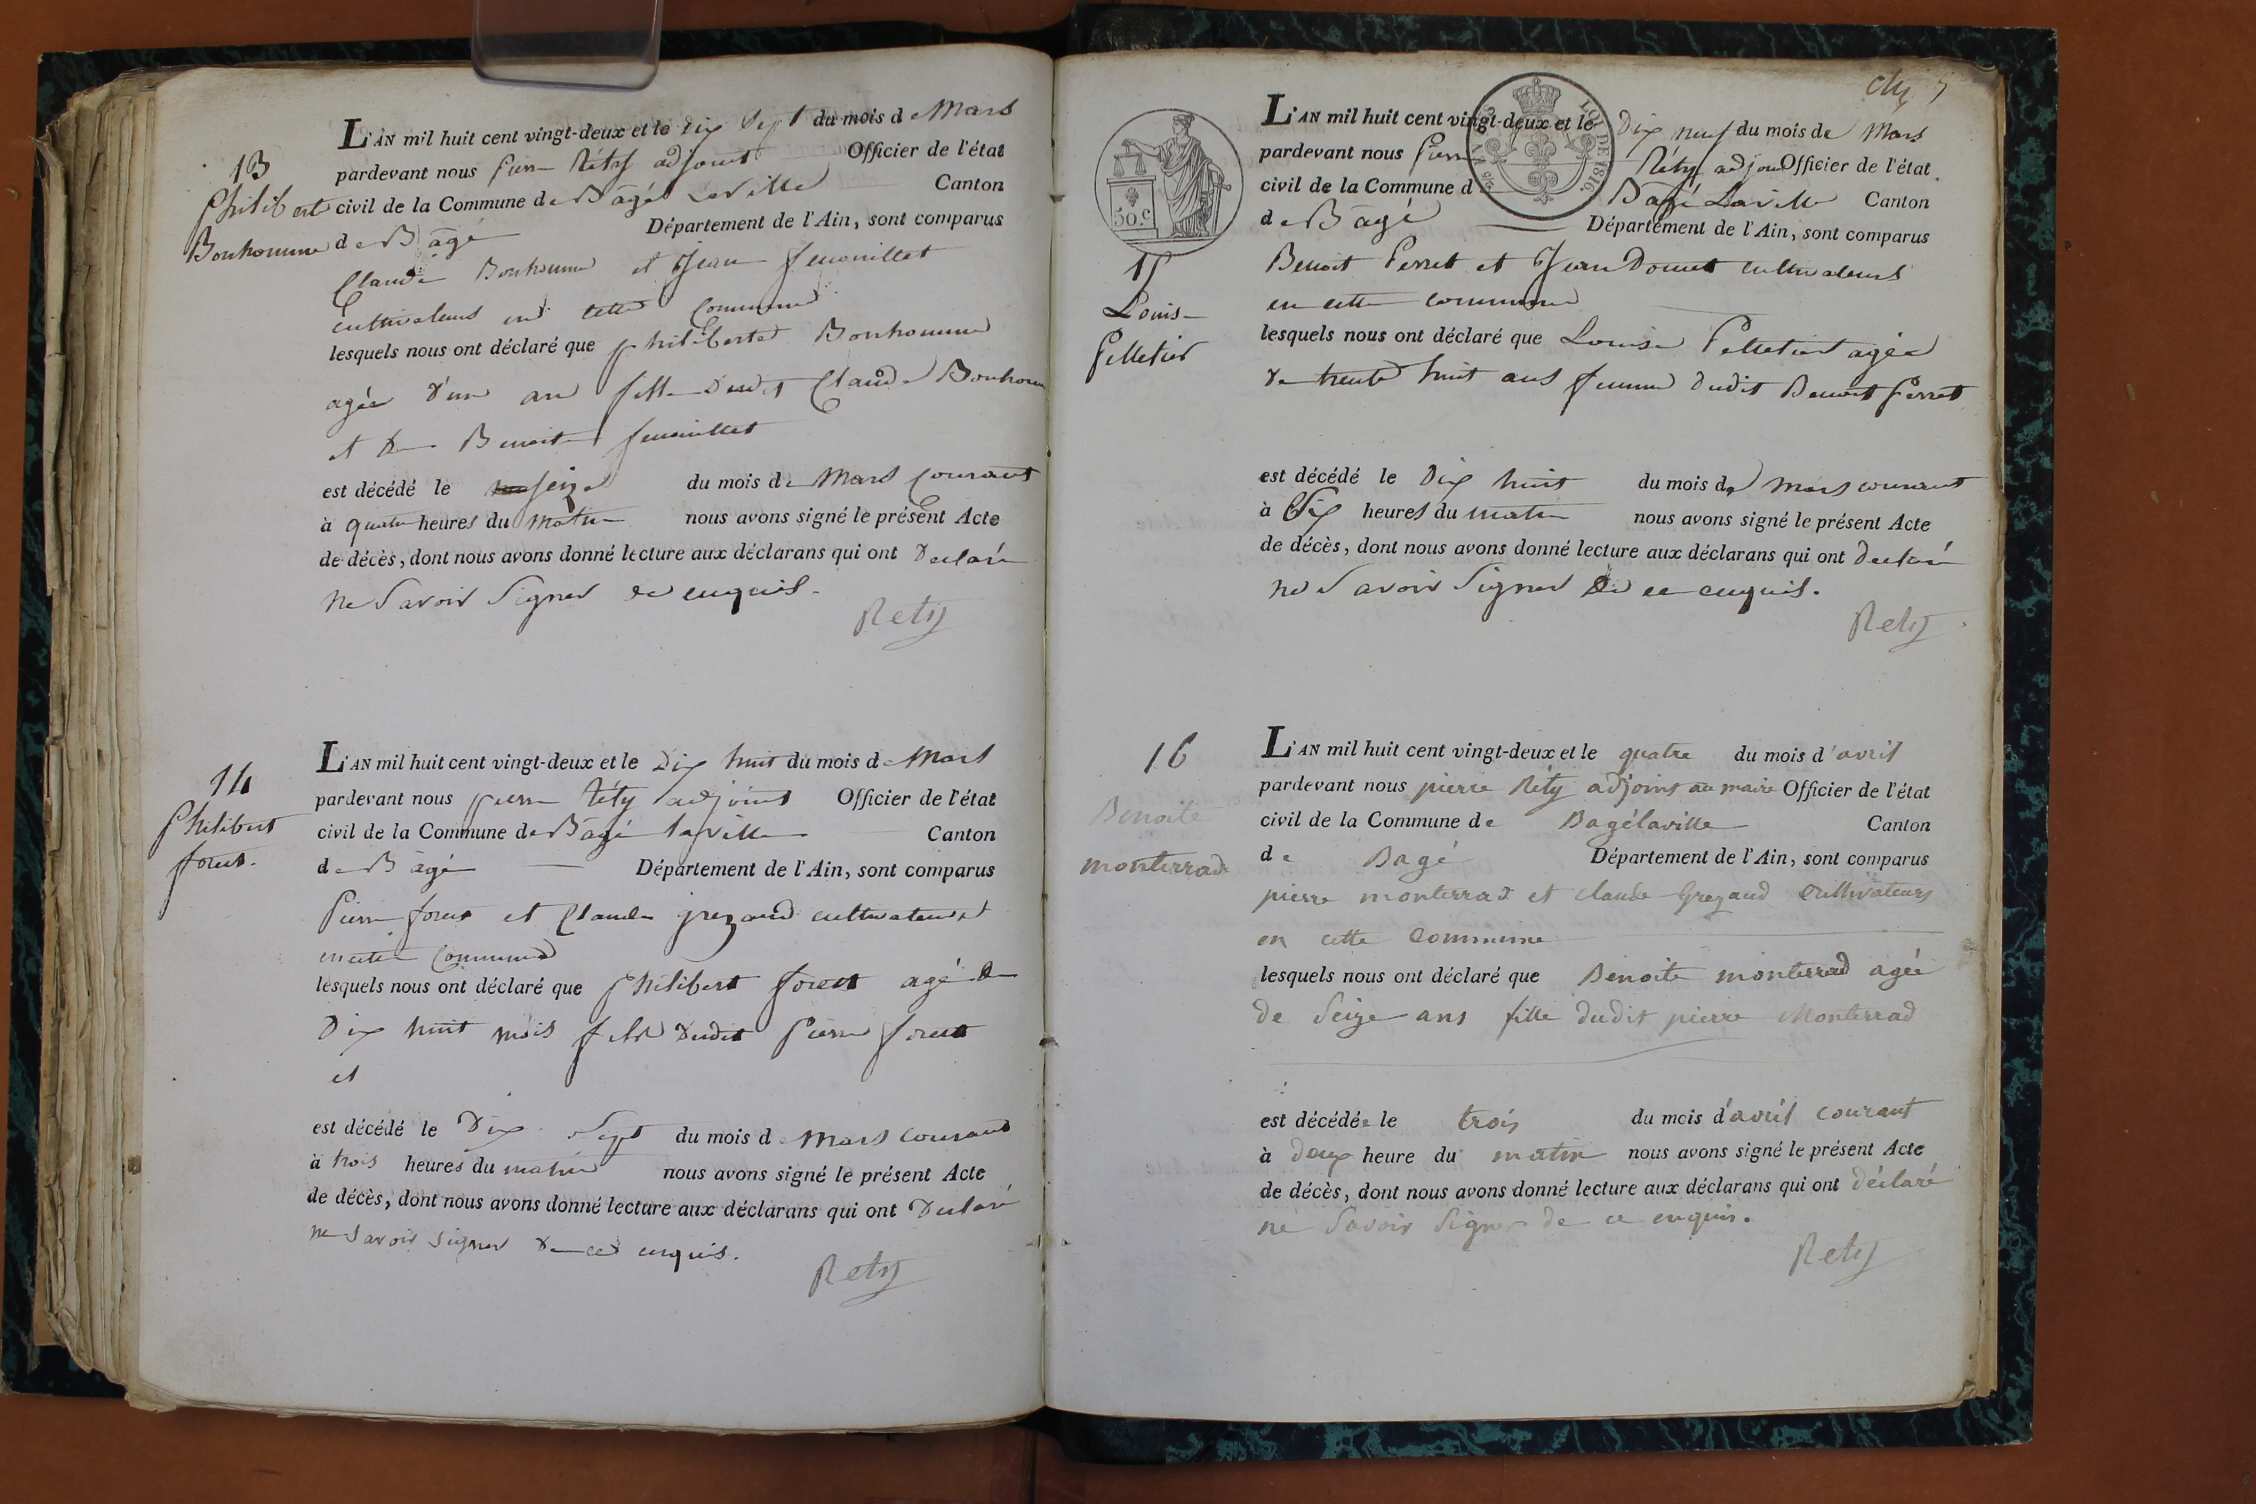 13
Philiberte
Bonhomme
L'AN mil huit cent vingt-deux et le dix sept du mois de Mars
pardevant nous Pierre Réty adjoint Officier de l'état
civil de la Commune de Bâgé Laville Canton
de Bâgé Département de l'Ain, sont comparus
Claude Bonhomme et Jean fenouillet
cultivateurs en cette Commune
lesquels nous ont déclaré que philiberte Bonhomme
agée d'un an fille dudit Claude Bonhomme
et de Benoite fenouillet
est décédé le seize du mois de Mars Courant
à quatre heures du Matin nous avons signé le présent Acte
de décès, dont nous avons donné lecture aux déclarans qui ont déclaré
ne Savoir Signer de ce enquis.
Rety
14
Philibert
foret.
L'AN mil huit cent vingt-deux et le Dix huit du mois de Mars
pardevant nous pierre Réty adjoint Officier de l'état
civil de la Commune de Bâgé laville Canton
de Bâgé Département de l'Ain, sont comparus
Pierre foret et Claude grezaud cultivateurs
en cette Commune
lesquels nous ont déclaré que Philibert foret agé de
Dix huit mois fils dudit Pierre foret
et
est décédé le Dix Sept du mois de Mars courant
à trois heures du matin nous avons signé le présent Acte
de décès, dont nous avons donné lecture aux déclarans qui ont Declaré
ne Savoir signer de ce enquis.
Rety
7
LOI DE 1816.
50.c
15
Louise
Pelletier
L'AN mil huit cent vingt-deux et le Dix neuf du mois de Mars
pardevant nous Pierre Réty adjoint Officier de l'état
civil de la Commune de Bâgé Laville Canton
de Bâgé Département de l'Ain, sont comparus
Benoit Perret et Jean Domet cultivateurs
en cette commune
lesquels nous ont déclaré que Louise Pelletier agée
de trente huit ans femme dudit Benoit Perret
est décédé le Dix huit du mois de Mars courant
à Six heures du matin nous avons signé le présent Acte
de décès, dont nous avons donné lecture aux déclarans qui ont declaré
ne Savoir Signer de ce enquis.
Rety
16
Benoite
monterrad
L'AN mil huit cent vingt-deux et le quatre du mois d'avril
pardevant nous pierre Réty adjoint au maire Officier de l'état
civil de la Commune de Bagélaville Canton
de Bagé Département de l'Ain, sont comparus
pierre monterrad et Claude Grezaud Cultivateurs
en cette Commune
lesquels nous ont déclaré que Benoite monterrad agée
de Seize ans fille dudit pierre Monterrad
est décédée le trois du mois d'avril courant
à deux heure du matin nous avons signé le présent Acte
de décès, dont nous avons donné lecture aux déclarans qui ont déclaré
ne Savoir Signer de ce enquis.
Rety